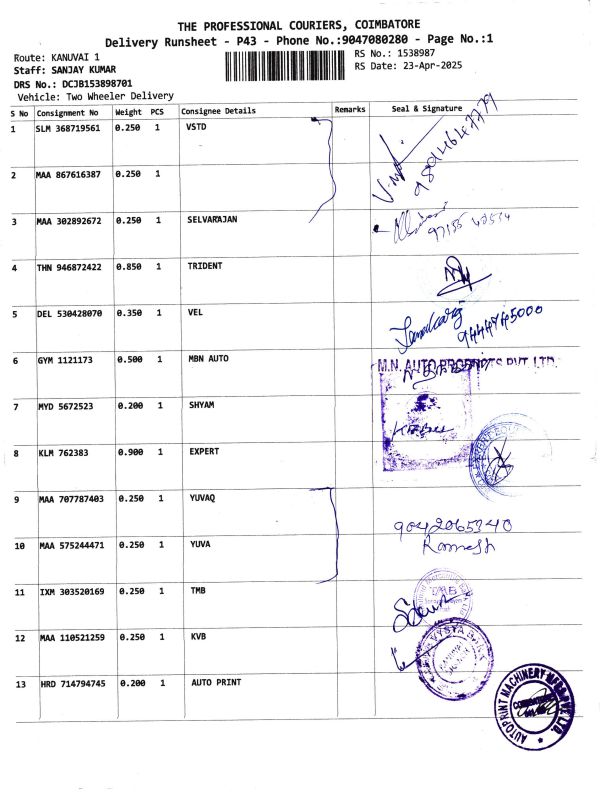 THE PROFESSIONAL COURIERS, COIMBATORE
Delivery Runsheet - P43 - Phone No.:9047080280 - Page No.:1
Route: KANUVAI 1
RS No.: 1538987
Staff: SANJAY KUMAR
RS Date: 23-Apr-2025
DRS No.: DCJB153898701
Vehicle: Two Wheeler Delivery
S No Consignment No Weight PCS Consignee Details Remarks Seal & Signature
1 SLM 368719561 0.250 1 VSTD
9894647779
2 MAA 867616387 0.250 1
3 MAA 302892672 0.250 1 SELVARAJAN
4 THN 946872422 0.850 1 TRIDENT
5 DEL 530428070 0.350 1 VEL
6 GYM 1121173 0.500 1 MBN AUTO M.N. AUTO PRODUCTS PVT. LTD.
7 MYD 5672523 0.200 1 SHYAM
8 KLM 762383 0.900 1 EXPERT
9 MAA 707787403 0.250 1 YUVAQ
9042065340
10 MAA 575244471 0.250 1 YUVA Ramesh
11 IXM 303520169 0.250 1 TMB
12 MAA 110521259 0.250 1 KVB
13 HRD 714794745 0.200 1 AUTO PRINT
AUTOPRINT MACHINERY MFRS PVT. LTD.